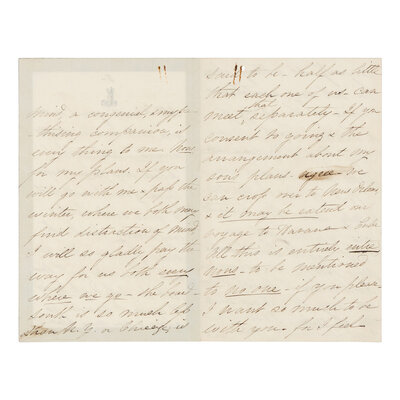 mind, a congenial, sympa-
-thising companion, is
every thing to me. Now
for my plans. If you
will go with me & pass the
winter, where we both may
find distraction of mind
I will so gladly pay the
way for us both every
where we go - the
South is so much
than N. Y. or Chicago, is
said to be - half as little
that each one of us can
that
meet, separately - If you
consent to going & the
arrangement about my
son's plans agree we
can over to New Orleans
& it may be extend our
voyage to Havana &
All this is entirely entre
nous - to be mentioned
to no one - if you please
I want so much to be
with you - for I feel